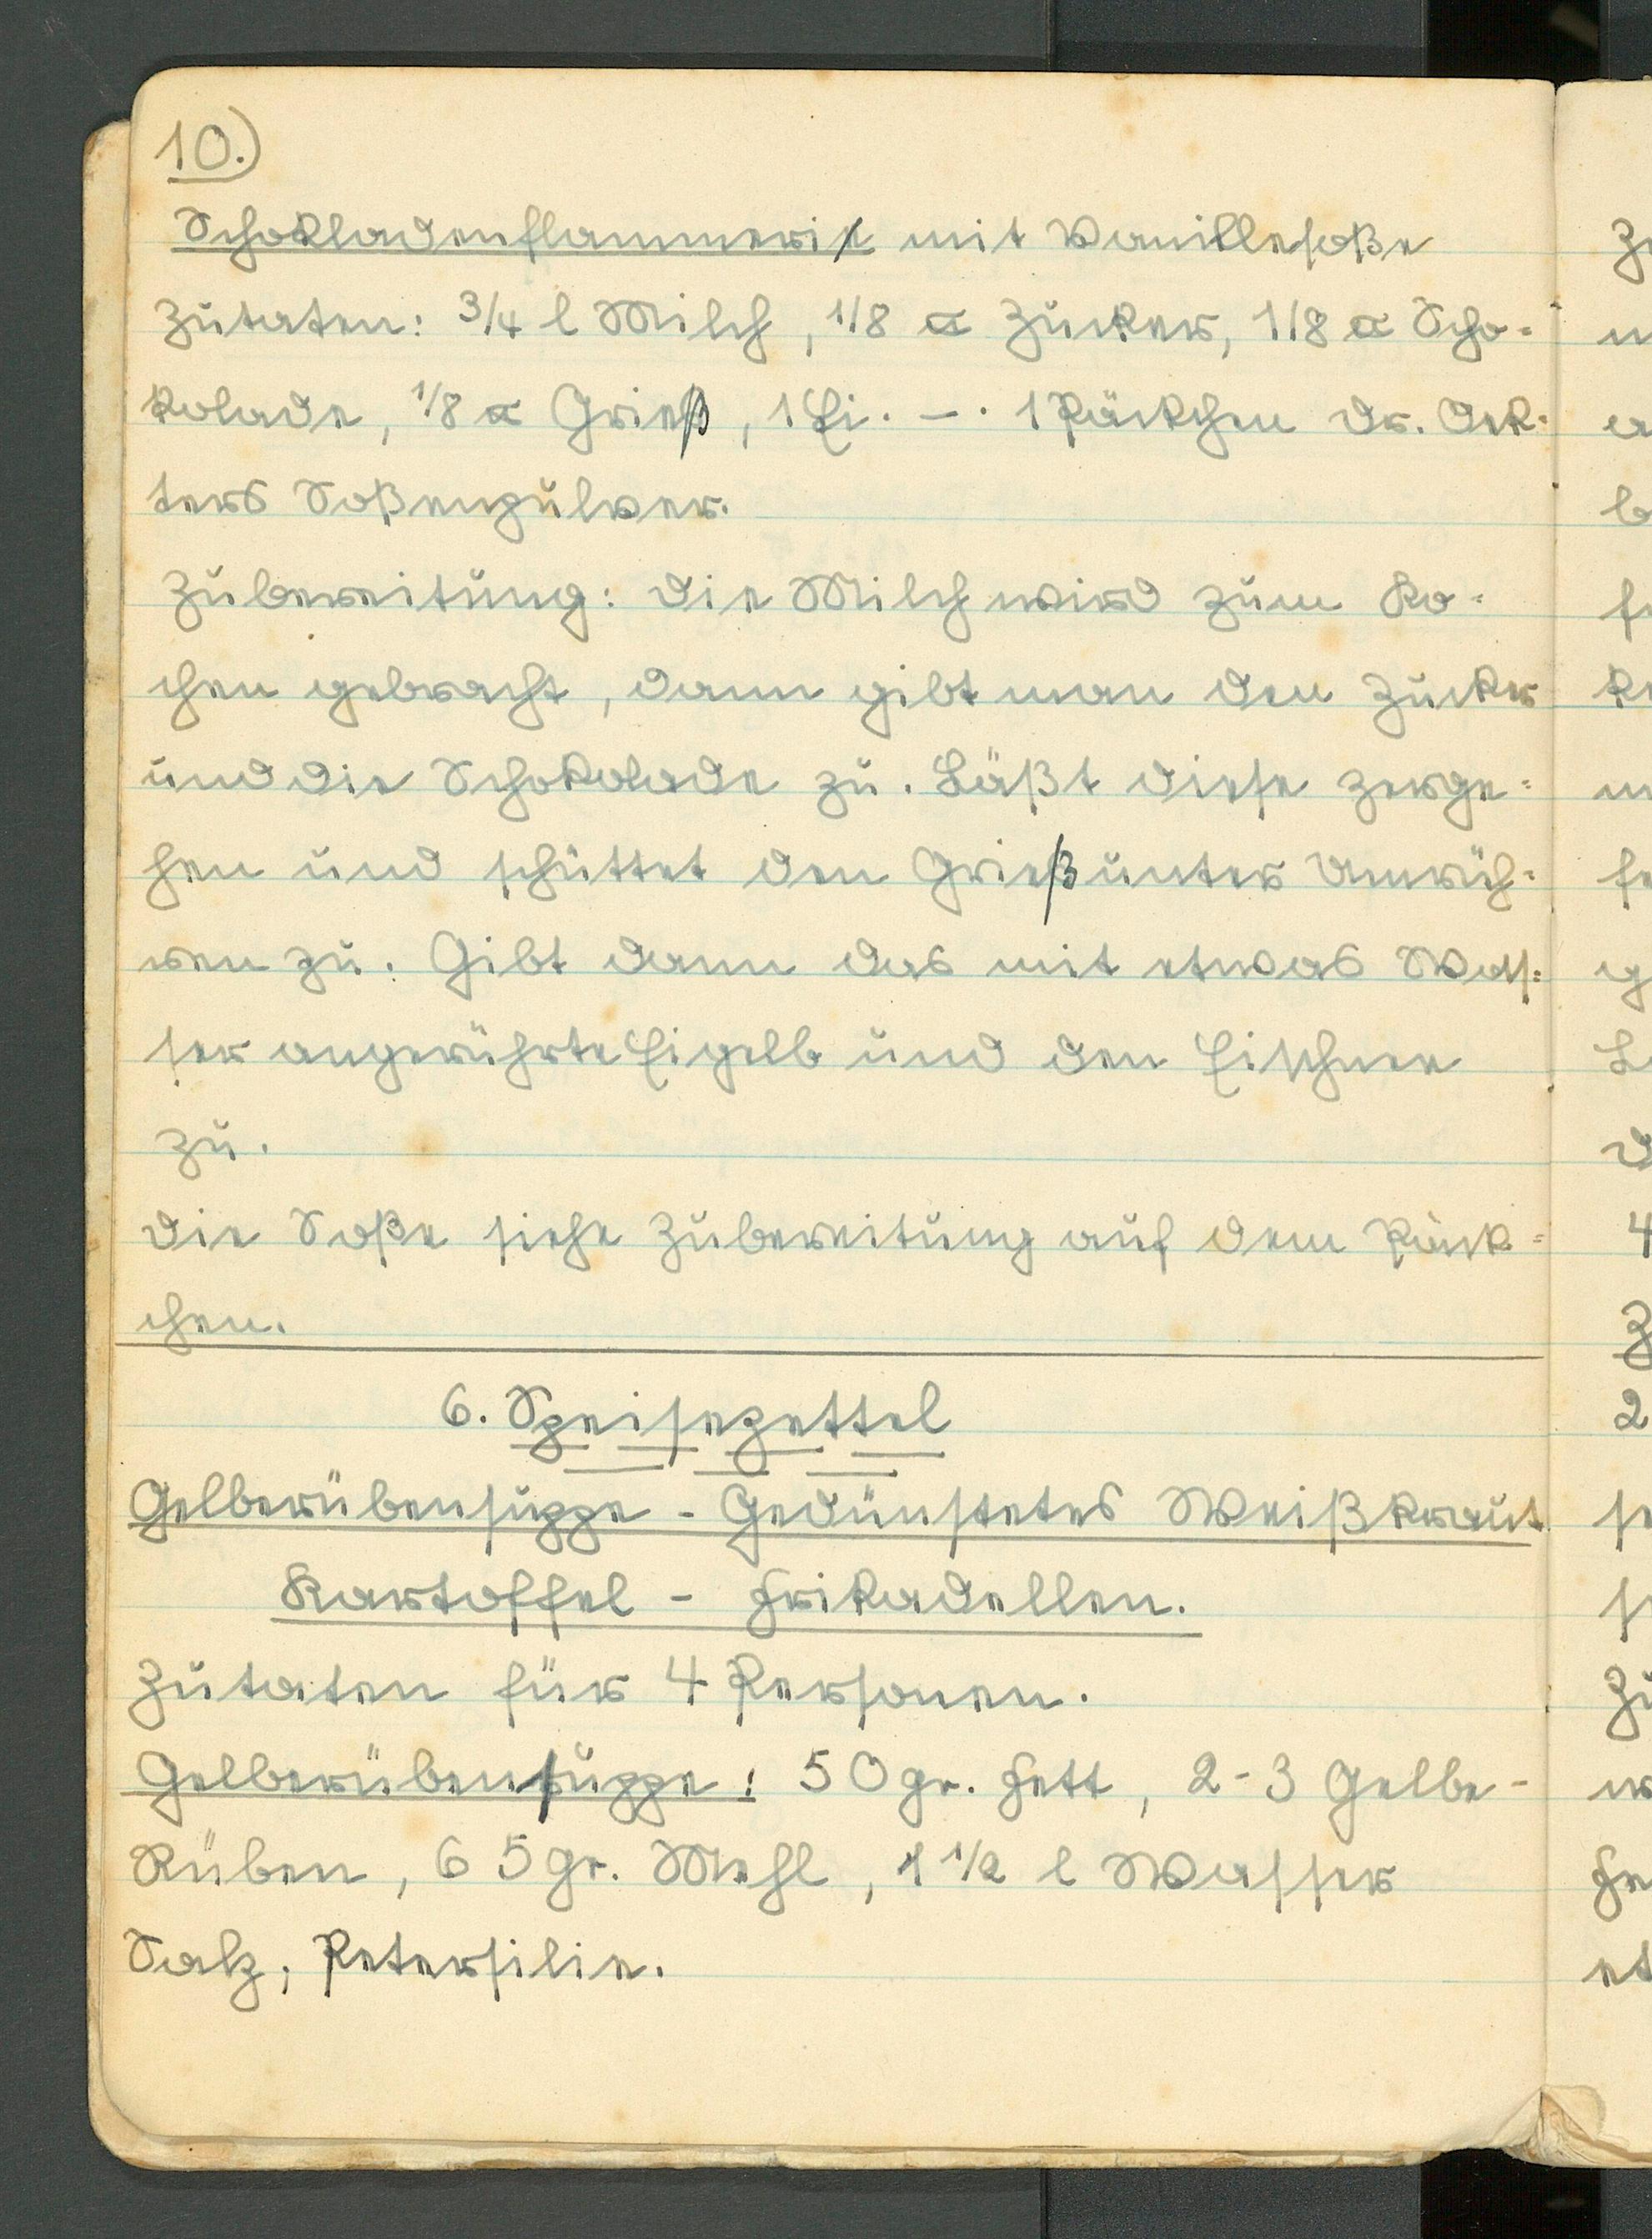 10.)
Schokladenflammeri mit Vanillesoße
Zutaten: 3/4 l Milch, 1/8 ℔ Zucker, 1/8 ℔ Scho-
kolade, 1/8 ℔ Grieß, 1 Ei. -. 1 Päckchen Dr. Oek-
ters Soßenpulver.
Zubereitung: Die Milch wird zum Ko-
chen gebracht, dann gibt man den Zucker
und die Schokolade zu. Läßt diese zerge-
hen und schüttet den Grieß unter Umrüh-
ren zu. Gibt dann das mit etwas Was-
ser angerührte Eigelb und den Eischnee
zu.
Die Soße siehe Zubereitung auf dem Päck-
chen.
6. Speisezettel
Gelberübensuppe - Gedünstetes Weißkraut
Kartoffel - Frikadellen.
Zutaten für 4 Personen.
Gelberübensuppe: 50 gr. Fett, 2-3 Gelbe-
Rüben, 65 gr. Mehl, 1 1/2 l Wasser
Salz, Petersilie.